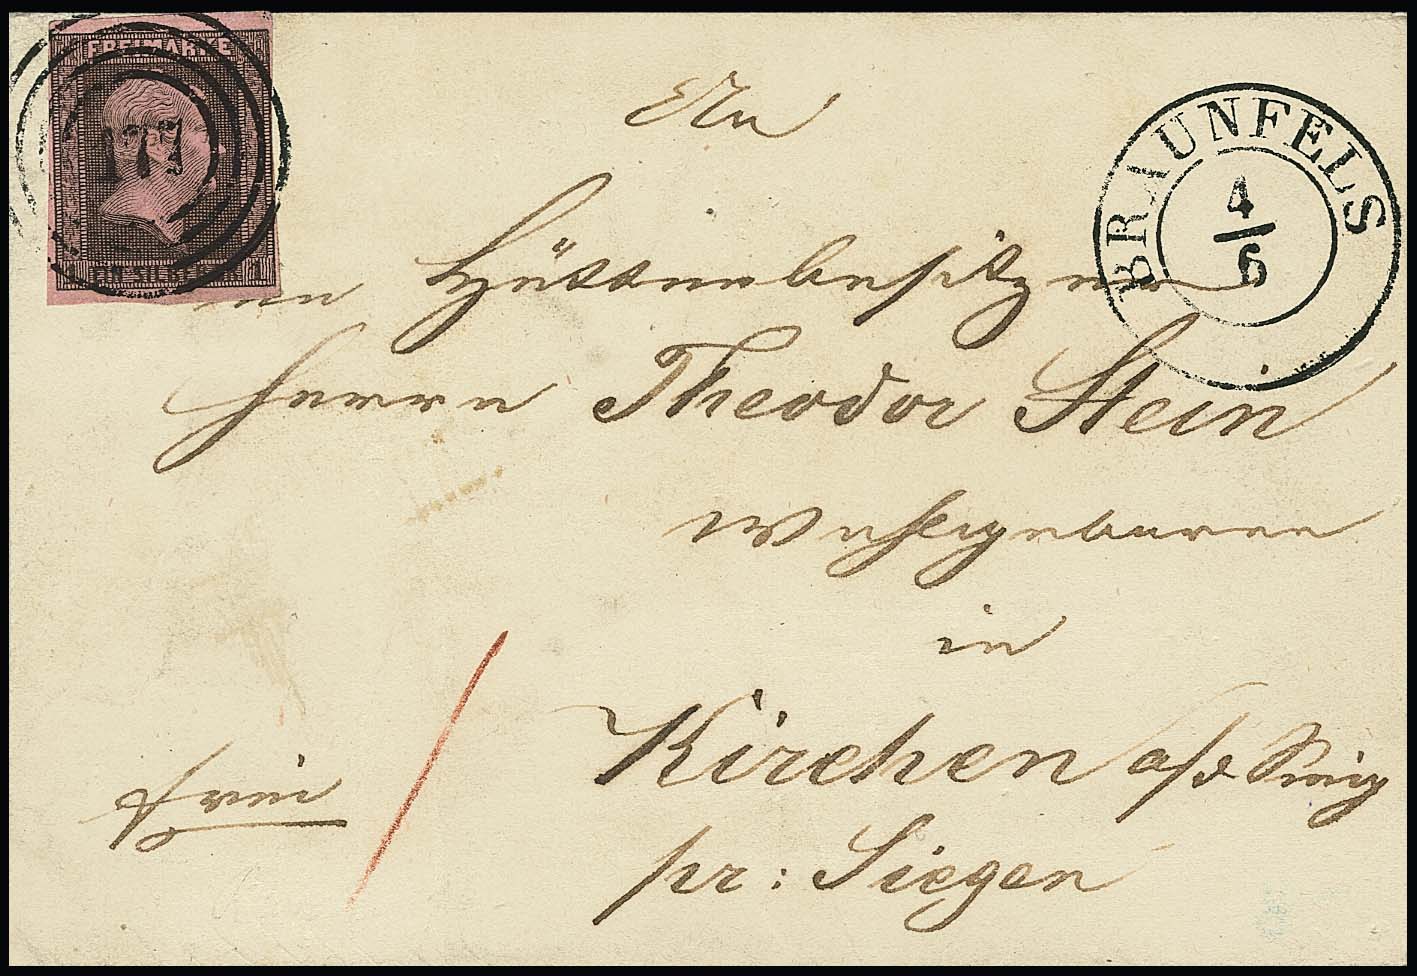 FREIMARKE
177
EIN SILBERGR. 1
BRAUNFELS
4/6
An
den Hüttenbesitzer
Herrn Theodor Stein
Wohlgeboren
in
Kirchen a/d Sieg
pr: Siegen
frei